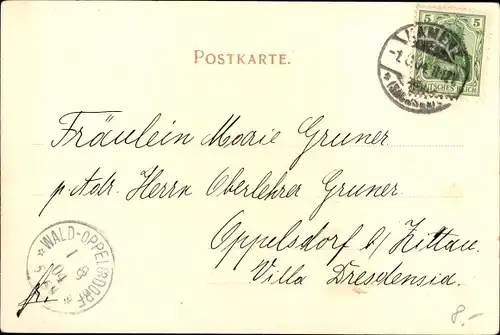 5 5
DEUTSCHES REICH
POSTKARTE.
Fräulein Marie Gruner
p. Adr. Herrn Oberlehrer Gruner
Oppelsdorf b/Zittau.
Villa Dresdensia.
*WALD-OPPELSDORF*
1 8
04
fr.
8.-